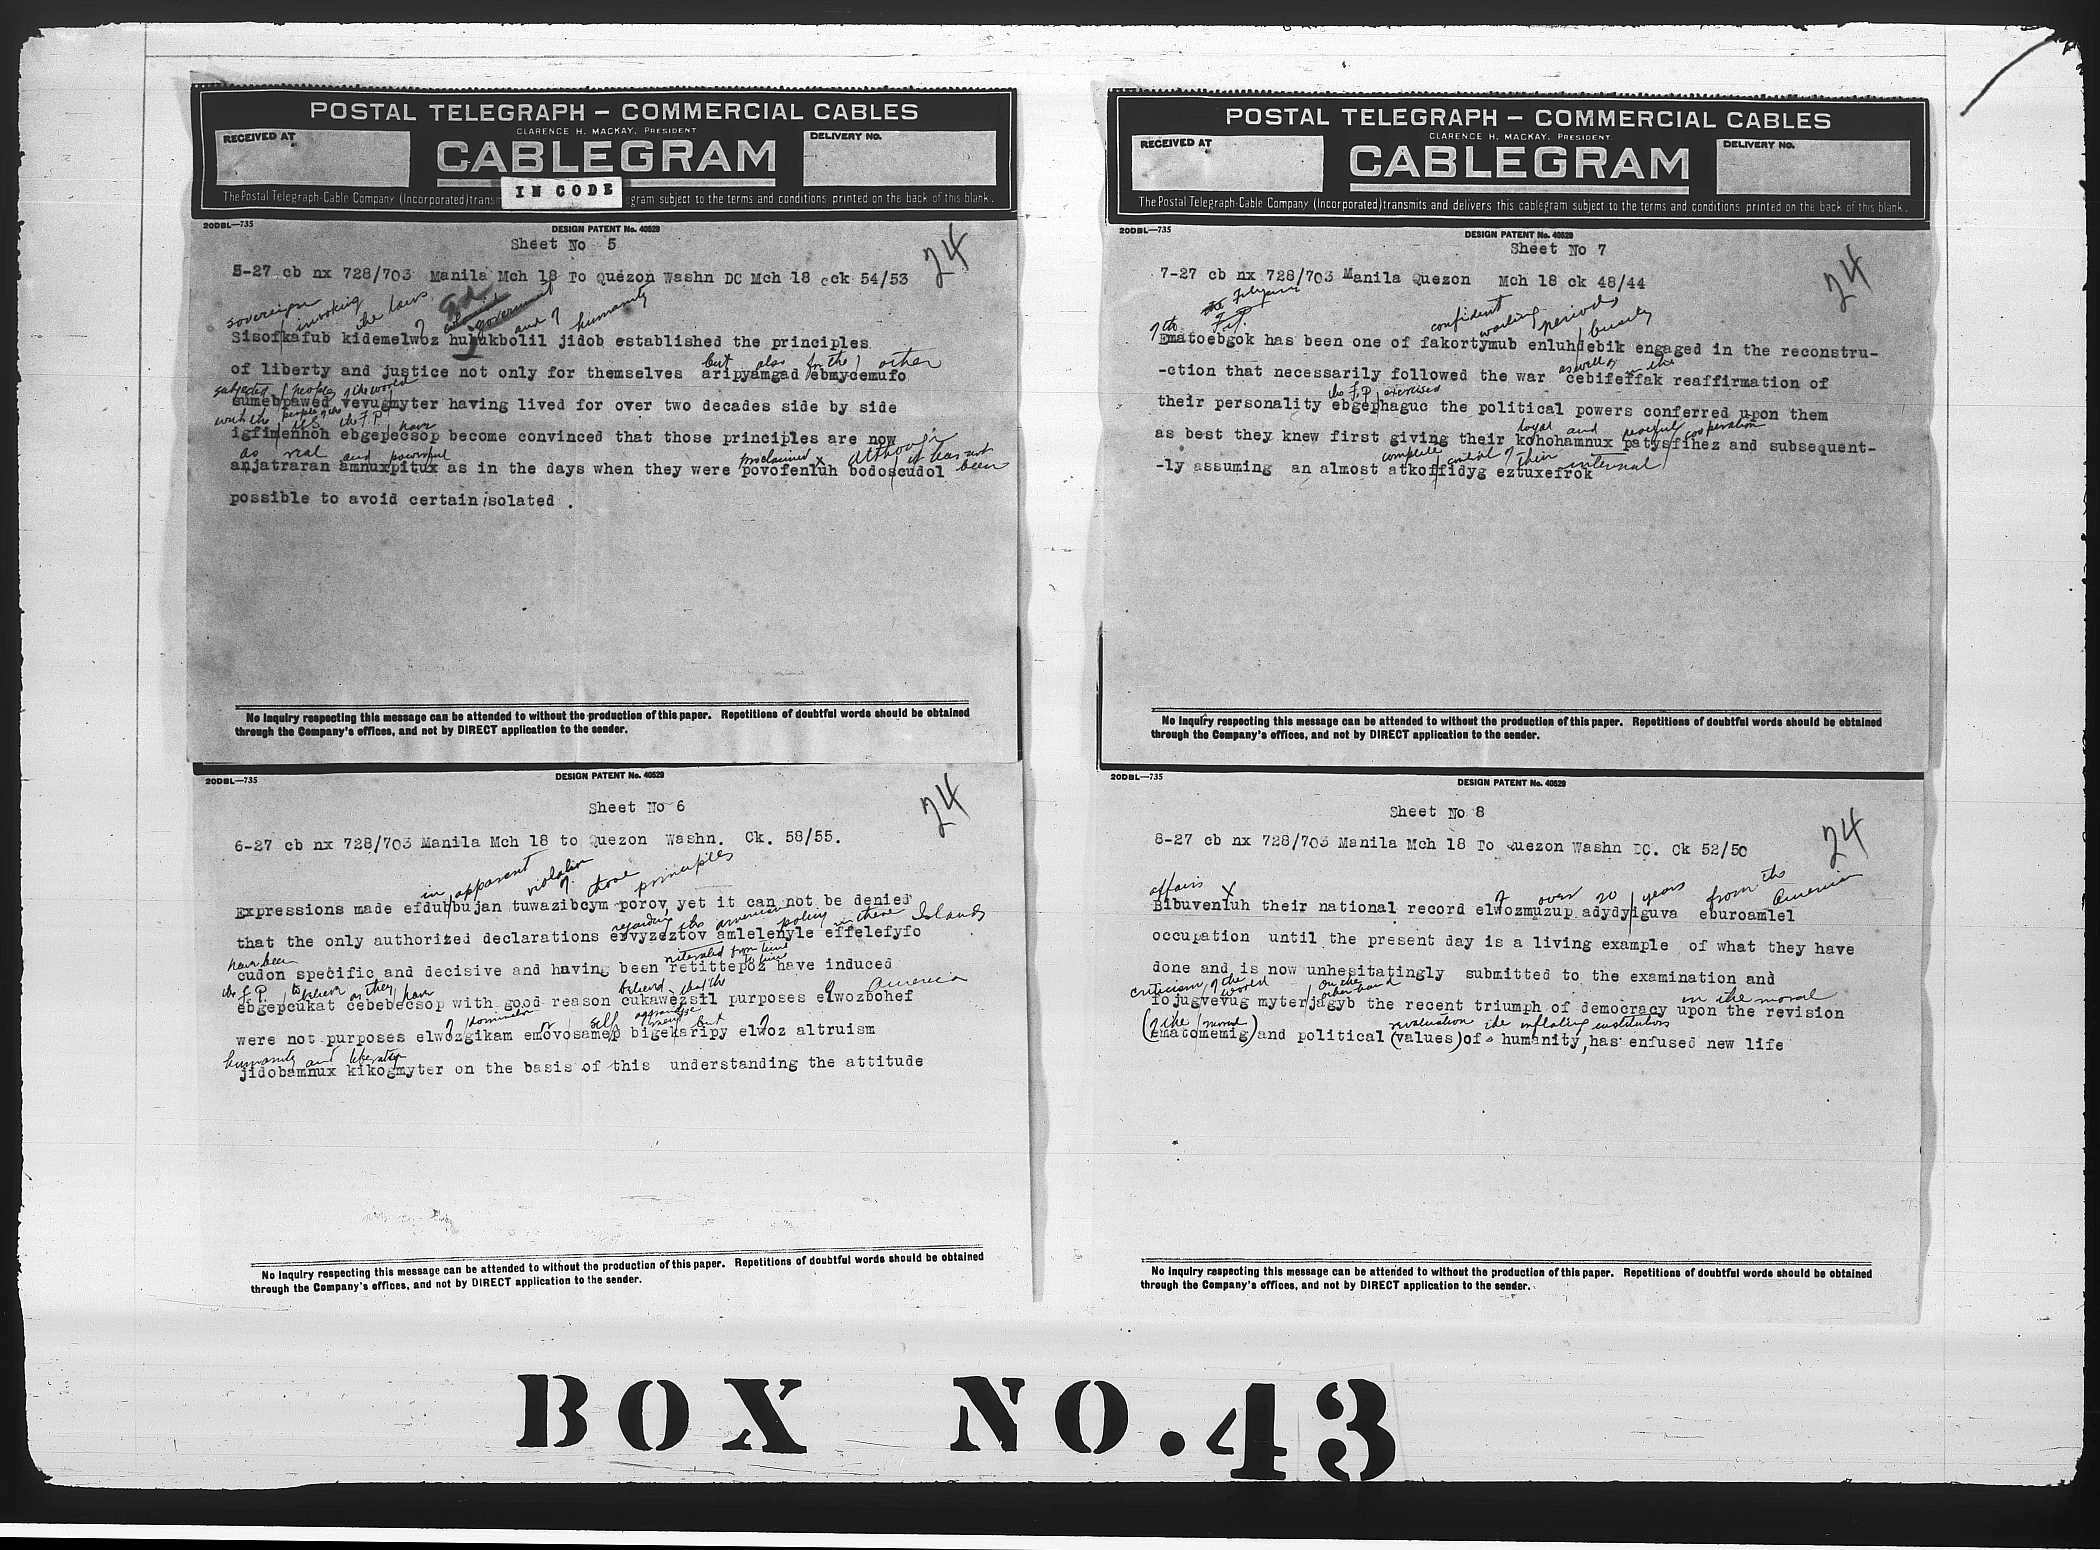 POSTAL TELEGRAPH – COMMERCIAL CABLES
CLARENCE H. MACKAY, PRESIDENT
RECEIVED AT
CABLEGRAM
DELIVERY NO.
IN CODE
The Postal Telegraph-Cable Company (Incorporated) trans gram subject to the terms and conditions printed on the back of this blank.
20DBL—735
DESIGN PATENT No. 40529
Sheet No 5
24
5-27 cb nx 728/703 Manila Mch 18 To Quezon Washn DC Mch 18 cck 54/53
sovereign invoking the laws of God government and of humanity
Sisofkafub kidemelwoz hujukbolil jidob established the principles
but also for the other
of liberty and justice not only for themselves aripyamgad ebmycemufo
subjected peoples of the world
sumebpawed vevugmyter having lived for over two decades side by side
with the people of the U.S. the F.P. have
igfimenhoh ebgepecsop become convinced that those principles are now
as real and powerful proclaimed x although it has not been
anjatraran amnuxpitux as in the days when they were povofenluh bodoscudol
possible to avoid certain isolated .
No inquiry respecting this message can be attended to without the production of this paper. Repetitions of doubtful words should be obtained
through the Company's offices, and not by DIRECT application to the sender.
20DBL—735
DESIGN PATENT No. 40529
Sheet No 6
24
6-27 cb nx 728/703 Manila Mch 18 to Quezon Washn. Ck. 58/55.
in apparent violation of those principles
Expressions made efdubbujan tuwazibcym porov yet it can not be denied
regarding the american policy in these Islands
that the only authorized declarations esvyzeztov amlelehyle effelefyfo
have been reiterated from time to time
cudon specific and decisive and having been retittepoz have induced
the F.P. to believe as they have believed that the America
ebgepcukat cebebecsop with good reason cukawezsil purposes elwozbohef
of domination or self aggrandizement but of
were not purposes elwozgikam emovosamep bigekaripy elwoz altruism
humanity and liberation
jidobamnux kikogmyter on the basis of this understanding the attitude
No inquiry respecting this message can be attended to without the production of this paper. Repetitions of doubtful words should be obtained
through the Company's offices, and not by DIRECT application to the sender.
POSTAL TELEGRAPH – COMMERCIAL CABLES
CLARENCE H. MACKAY, PRESIDENT
RECEIVED AT
CABLEGRAM
DELIVERY NO.
The Postal Telegraph-Cable Company (Incorporated) transmits and delivers this cablegram subject to the terms and conditions printed on the back of this blank.
20DBL—735
DESIGN PATENT No. 40529
Sheet No 7
24
7-27 cb nx 728/703 Manila Quezon Mch 18 ck 48/44
of the F.P. confident waiting periods busily
Ematoebgok has been one of fakortymub enluhdebik engaged in the reconstru-
as well as in the
-ction that necessarily followed the war cebifeffak reaffirmation of
the F.P. exercised
their personality ebgephaguc the political powers conferred upon them
loyal and peaceful cooperation
as best they knew first giving their kohohamnux patysfihez and subsequent-
complete control of their internal
-ly assuming an almost atkoffidyg eztuxefrok
No inquiry respecting this message can be attended to without the production of this paper. Repetitions of doubtful words should be obtained
through the Company's offices, and not by DIRECT application to the sender.
20DBL—735
DESIGN PATENT No. 40529
Sheet No 8
24
8-27 cb nx 728/703 Manila Mch 18 To Quezon Washn DC. Ck 52/50
affairs x of over 20 years from the American
Bibuvenluh their national record elwozmuzup adydyiguva eburoamlel
occupation until the present day is a living example of what they have
done and is now unhesitatingly submitted to the examination and
criticism of the world on the other hand in the moral
fojugvevug myterjagyb the recent triumph of democracy upon the revision
of the moral institutions
(ematomemig) and political (values) of humanity, has enfused new life
No inquiry respecting this message can be attended to without the production of this paper. Repetitions of doubtful words should be obtained
through the Company's offices, and not by DIRECT application to the sender.
BOX NO. 43